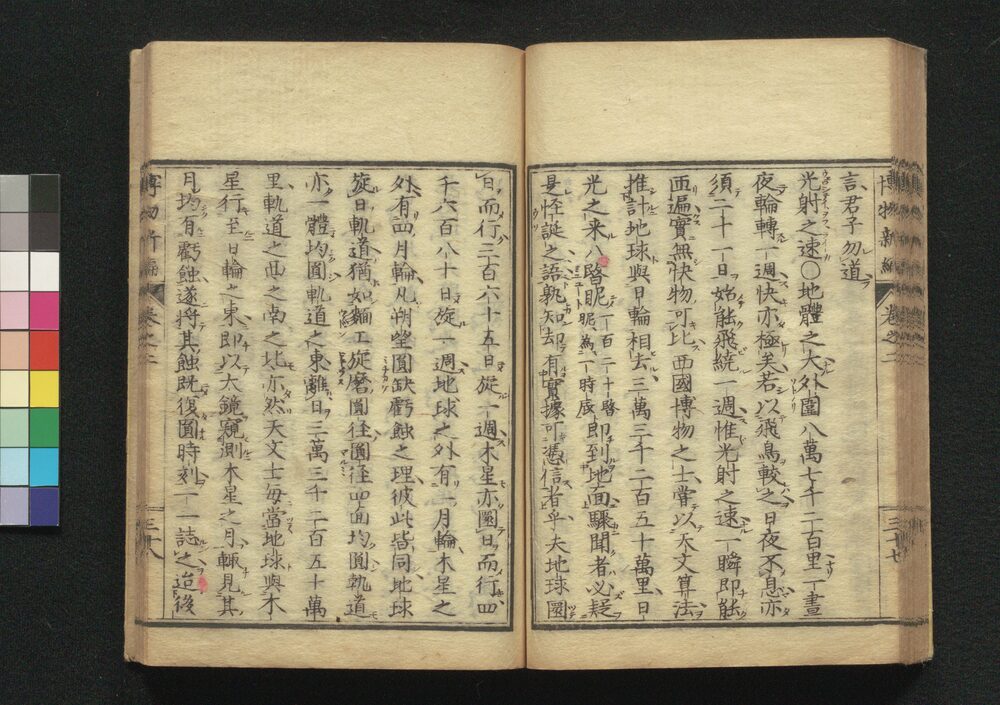 言、君子勿道
光射之速〇地體之大外圍八萬七千二百里一晝
夜輪轉一週快亦極矣若以飛鳥較之日夜不息亦
須二十一日始能飛繞一週惟光射之速一瞬即能
匝遍實無快物可比西國博物之士嘗以天文算法
推計地球與日輪相去三萬三千二百五十萬里日
光之来八晷昵一百二十晷昵為一時辰即到地面驟聞者必疑
是怪誕之語孰知却有實據可憑信者乎夫地球圜
日而行三百六十五日旋一週木星亦圜日而行四
千六百八十日旋一週地球之外有一月輪木星之
外有四月輪凡朔望圓缺虧蝕之理彼此皆同地球
旋日軌道猶如麵工旋磨圓徑圓徑四面均圓軌道
亦一體均圓軌道之東離日三萬三千二百五十萬
里軌道之西之南之北亦然天文士每當地球與木
星行至日輪之東即以大鏡窺測木星之月輒見其
月均有虧蝕遂將其蝕既復圓時刻一一誌之迨後
博物新編
卷之二
三十七
博物新編
卷之二
三十八